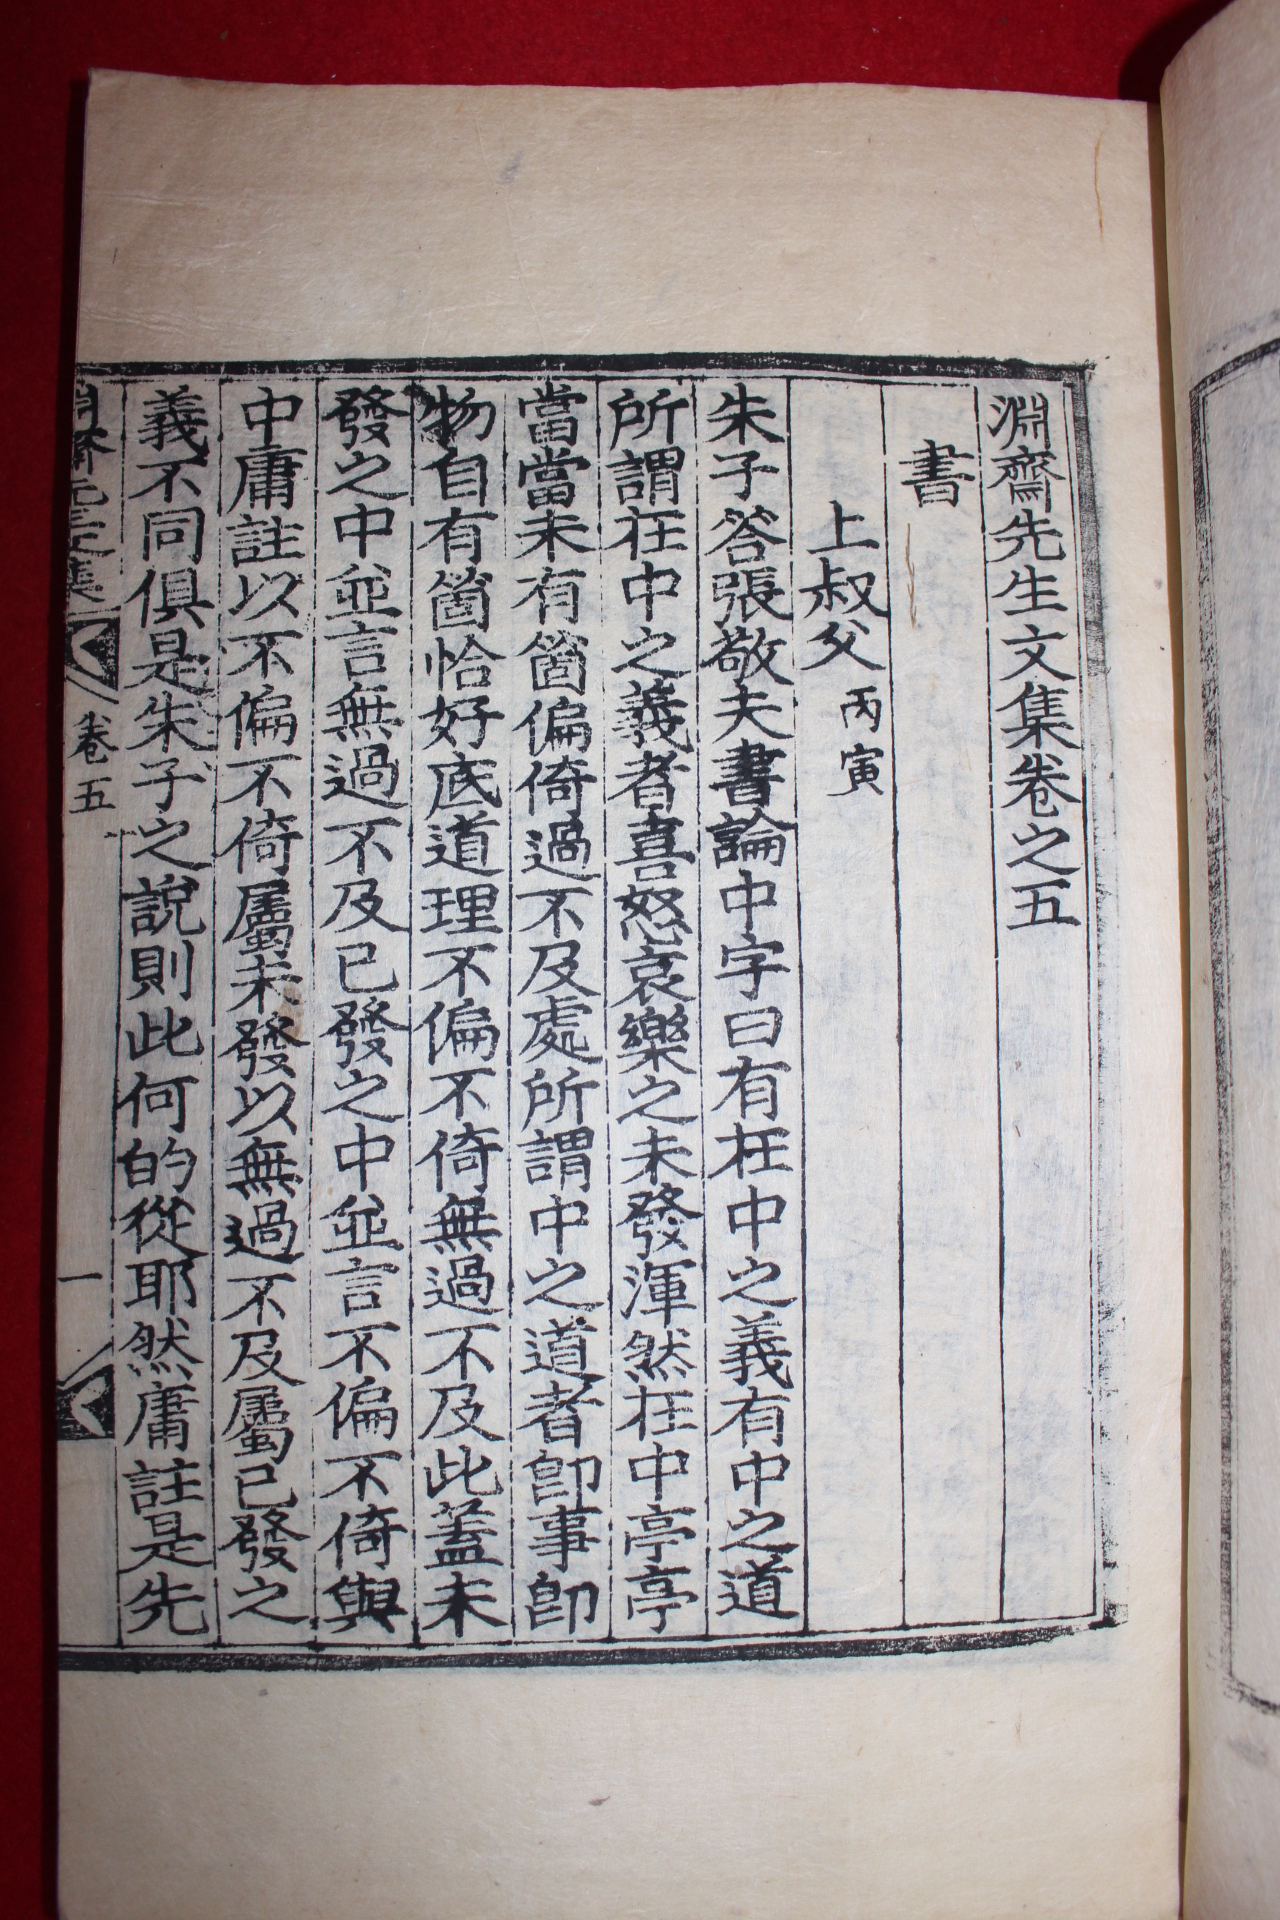 淵齋先生文集卷之五
書
上叔父 丙寅
朱子答張敬夫書論中字曰有在中之義有中之道
所謂在中之義者喜怒哀樂之未發渾然在中亭亭
當當未有箇偏倚過不及處所謂中之道者卽事卽
物自有箇恰好底道理不偏不倚無過不及此蓋未
發之中並言無過不及已發之中並言不偏不倚與
中庸註以不偏不倚屬未發以無過不及屬已發之
義不同俱是朱子之說則此何的從耶然庸註是先
淵齋先生文集
卷五
一